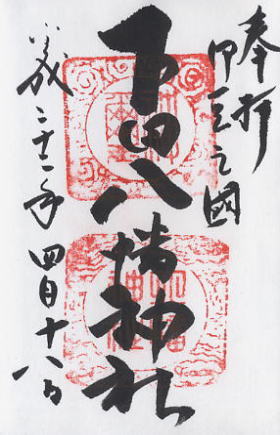 奉拝
伊豆之國
下田八幡神社
平成二十二年四月十八日